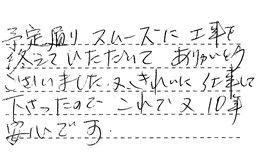 予定通り スムーズに 工事を
終えていただいて ありがとう
ございました。又、きれいに 仕事して
下さったので これで又 10年
安心です。